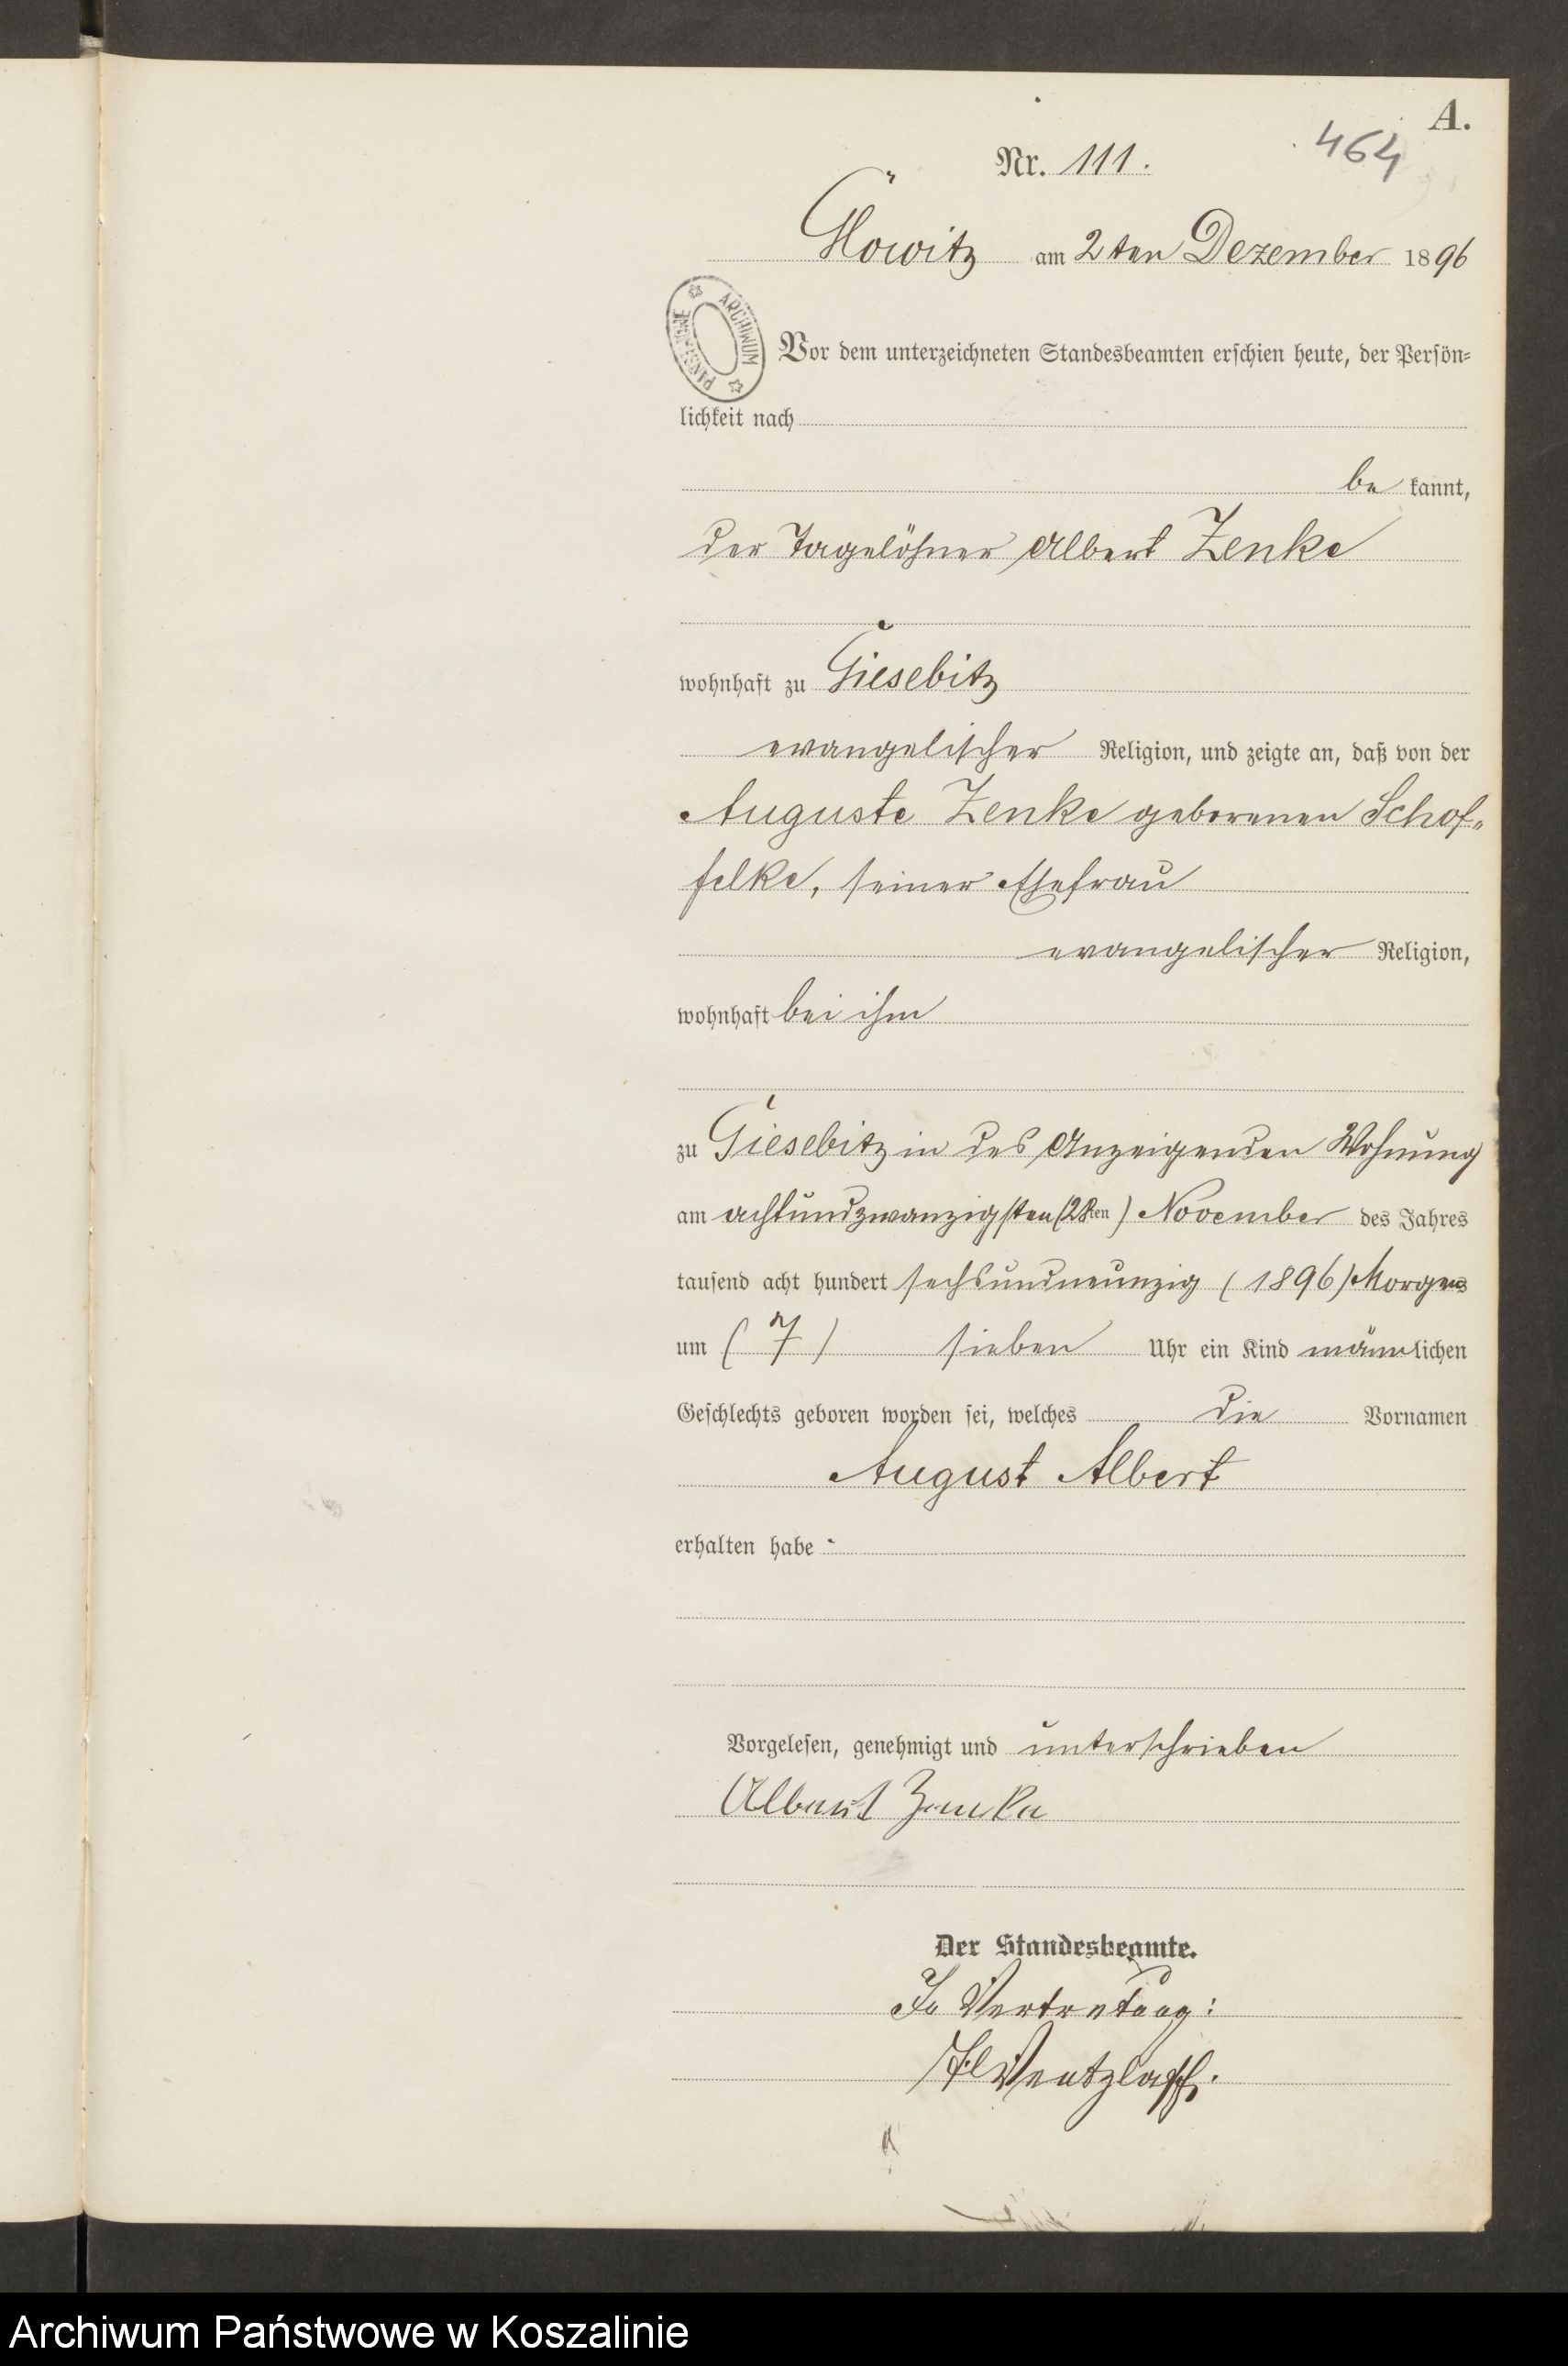 A.
464
Nr. 111.
Glowitz am 2ten Dezember 1896
ARCHIWUM PAŃSTWOWE
Vor dem unterzeichneten Standesbeamten erschien heute, der Persön-
lichkeit nach
be kannt,
der Tagelöhner Albert Zenke
wohnhaft zu Giesebitz
evangelischer Religion, und zeigte an, daß von der
Auguste Zenke geborenen Schof-
felke, seiner Ehefrau
evangelischer Religion,
wohnhaft bei ihm
zu Giesebitz in des Anzeigenden Wohnung
am achtundzwanzigsten (28ten) November des Jahres
tausend acht hundert sechsundneunzig (1896) Morgens
um (7) sieben Uhr ein Kind männlichen
Geschlechts geboren worden sei, welches die Vornamen
August Albert
erhalten habe
Vorgelesen, genehmigt und unterschrieben
Albert Zenke
Der Standesbeamte.
In Vertretung:
Wentzlaff.
Archiwum Państwowe w Koszalinie